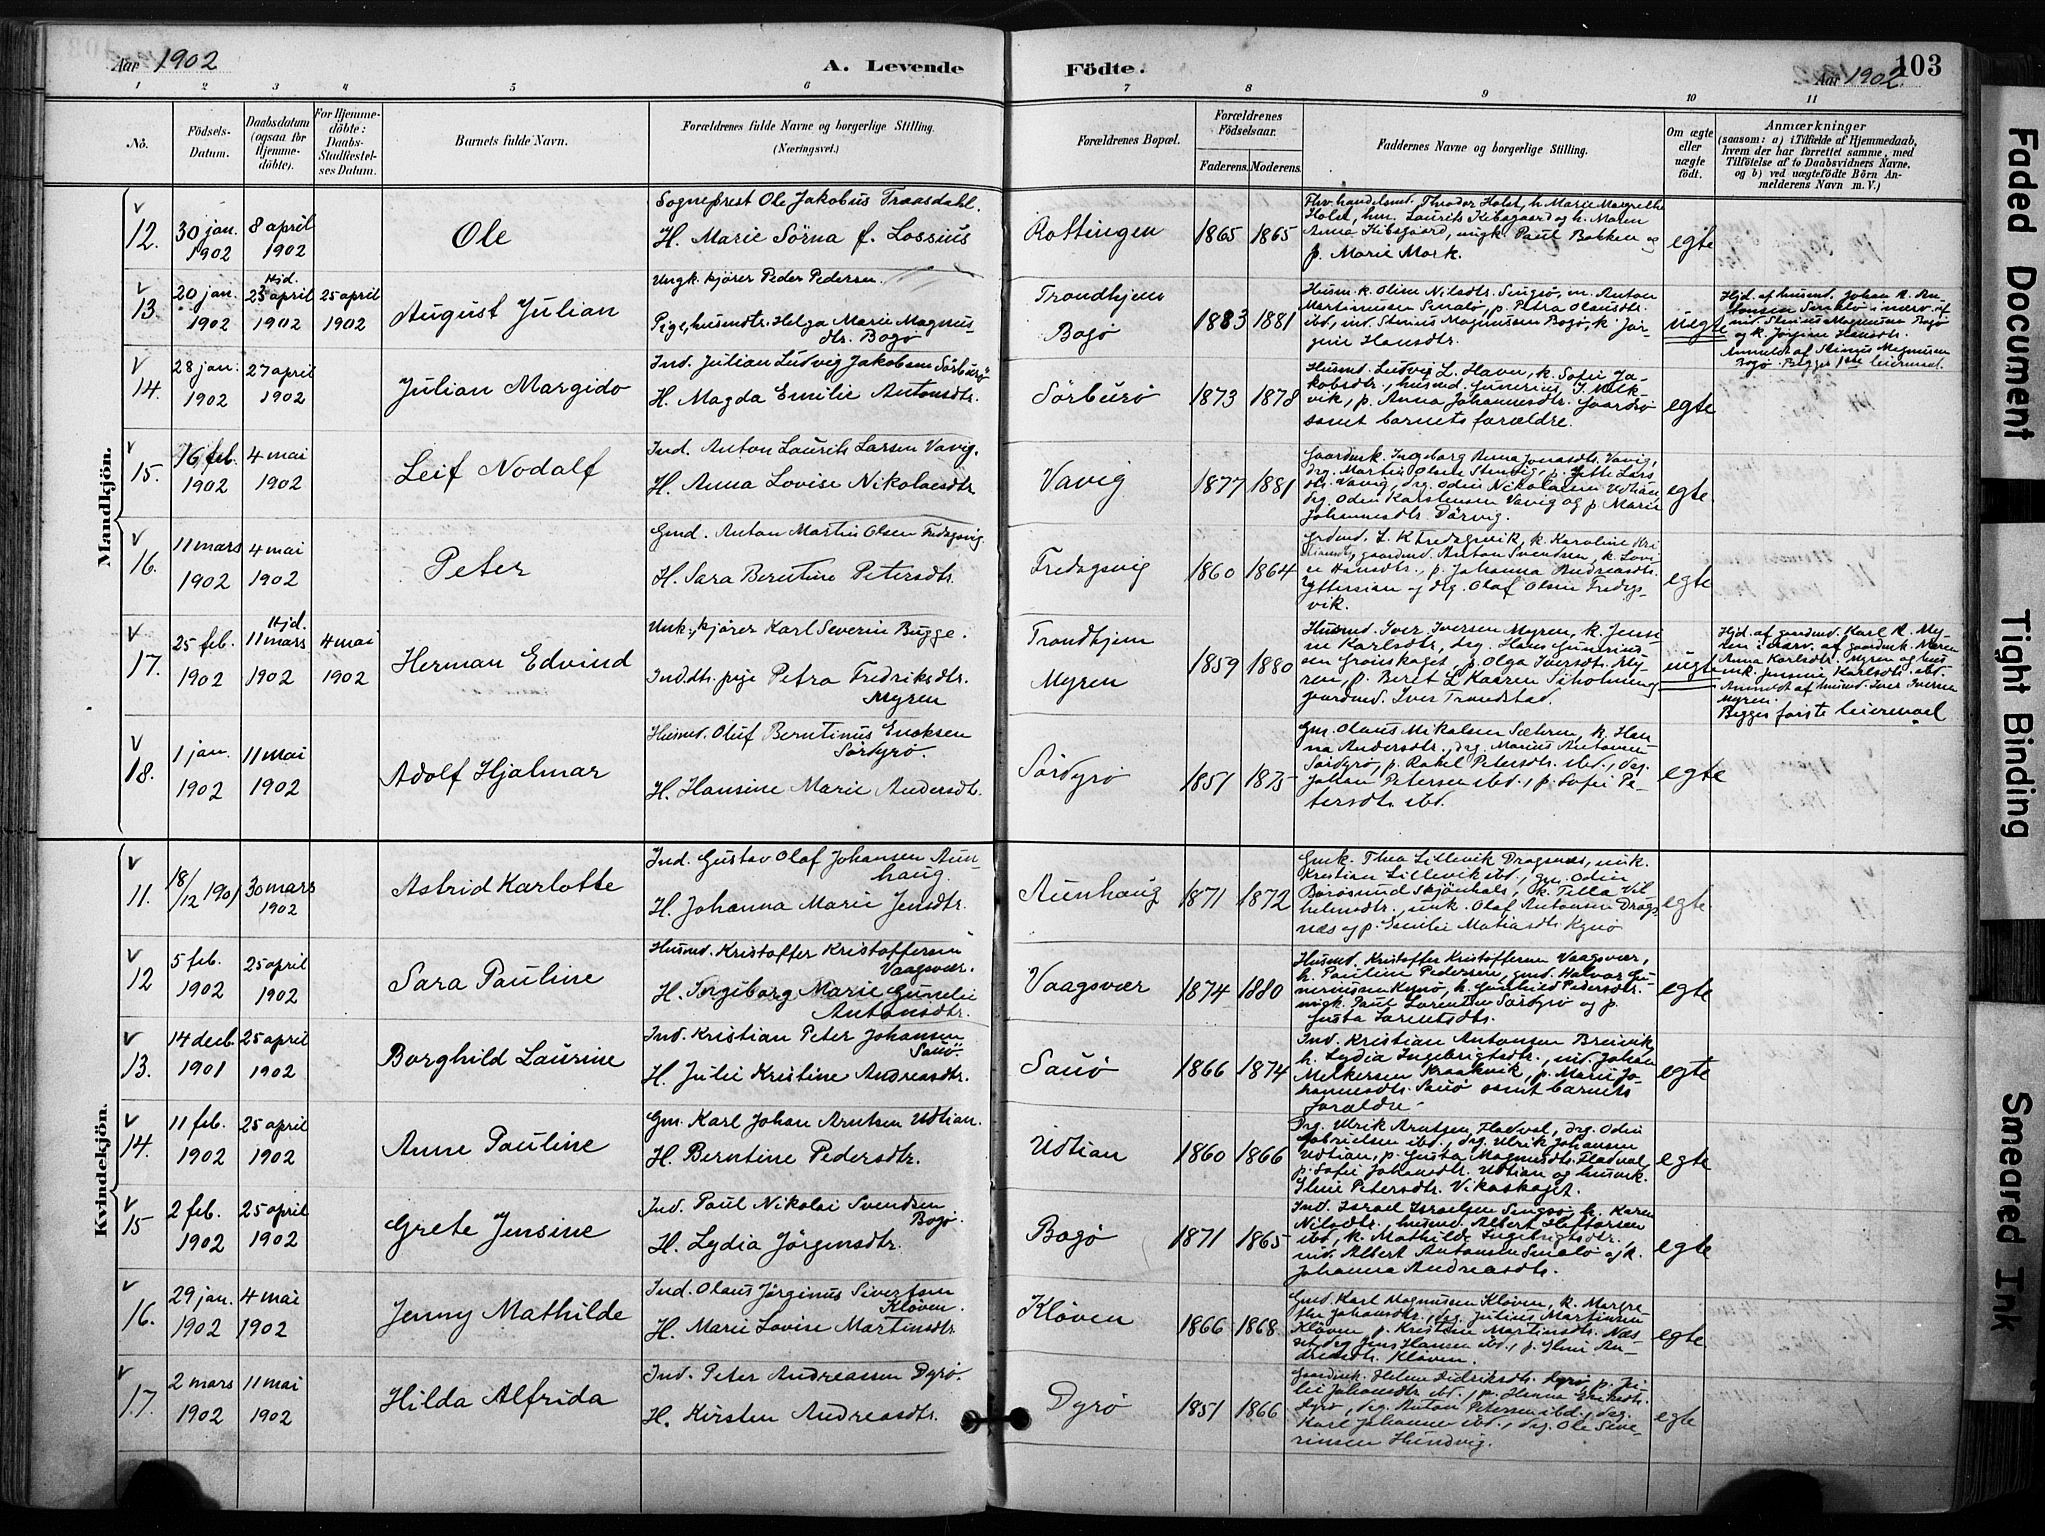 Aar 1902
A. Levende
Födte.
103
Aar 1902
1 2 3 4 5 6 7 8 9 10 11
No.
Födsels-
Datum.
Daabsdatum
(ogsaa for
Hjemme-
döbte).
For Hjemme-
döbte:
Daabs-
Stadfæstel-
ses Datum.
Barnets fulde Navn.
Forældrenes fulde Navne og borgerlige Stilling.
(Næringsvei.)
Forældrenes Bopæl.
Forældrenes
Födselsaar.
Faderens. Moderens.
Faddernes Navne og borgerlige Stilling.
Om ægte
eller
uægte
födt.
Anmærkninger
(saasom: a) i Tilfælde af Hjemmedaab,
hvem der har forrettet samme, med
Tilföielse af to Daabsvidners Navne,
og b) ved uægtefödte Börn An-
melderens Navn m. V.)
Mandkjön.
12.
30 jan.
1902
8 april
1902
Ole
Sogneprest Ole Jakobus Traasdahl.
H. Marie Sörna f. Lossius
Rottingen
1865 1865
Fhv. handelsmd. Theodor Holet, h. Marie Margrethe
Holet, hm. Laurits Kibsgaard og h. Maren
Anna Kibsgaard, ungk. Paul Bakken og
p. Marie Mork.
egte
13.
20 jan.
1902
Hjd.
23 april
1902
25 april
1902
August Julian
Ungk. kjörer Peder Pedersen.
Pige, husmdtr. Helga Marie Magnus-
dtr. Bogø
Trondhjem
Bogø
1883 1881
Husm. k. Oline Nilsdtr. Singsø, m. Anton
Martinussen Smalø, p. Petra Olausdtr.
ibd., ind. Stinius Magnussen Bogø, k. Jør-
gine Hansdtr.
uegte
Hjd. af husmd. Johan A. An-
tonsen Smalø i nærv. af
ind. Stinius Magnussen Bogø
og k. Jørgine Hansdtr.
Anmeldt af Stinius Magnussen
Bogø. Begges 1ste leiermaal.
14.
28 jan.
1902
27 april
1902
Julian Margido
Ind. Julian Ludvig Jakobsen Sörburø
H. Magda Emilie Antonsdtr.
Sörburø
1873 1878
Husmd. Ludvig L. Havn, k. Sofie Ja-
kobsdtr., husmd. Gunerius J. Melk-
vik, p. Anna Johannesdtr. Gaardsø
samt barnets forældre.
egte
15.
16 feb.
1902
4 mai
1902
Leif Nodalf
Ind. Anton Laurits Larsen Vavig.
H. Anna Lovise Nikolaisdtr.
Vavig
1877 1881
Gaardmk. Ingeborg Anna Jonasdtr. Vavig,
drg. Martin Olsen Stenvig, p. Jette Lars-
dtr. Vavig, drg. Odin Nikolaisen Udtian,
drg. Odin Karstensen Vavig og p. Marie
Johannesdtr. Dörvig.
egte
16.
11 mars
1902
4 mai
1902
Peter
Gmd. Anton Martin Olsen Fredagsvig
H. Sara Berntine Petersdtr.
Fredagsvig
1860 1864
Grdmd. L. K. Fredagsvik, k. Karoline Kri-
stiansdtr., gaardmd. Anton Svendsen, k. Lovi-
se Hansdtr., p. Johanna Andreasdtr.
Yttersian og drg. Olaf Olsen Fredags-
vik.
egte
17.
25 feb.
1902
Hjd.
11 mars
1902
4 mai
1902
Herman Edvind
Unk., kjörer Karl Severin Bugge.
Ind.dtr. pige Petra Fredriksdtr.
Myren
Trondhjem
Myren
1859 1880
Husmd. Iver Iversen Myren, k. Jensi-
ne Karlsdtr., drg. Hans Gunerius-
sen Grönskaget, p. Olga Iversdtr. My-
ren, p. Beret L. Kaaren Siholmen og
gaardmd. Iver Trondstad.
uegte
Hjd. af gaardmd. Karl K. My-
ren i nærv. af gaardmk. Maren
Anna Karlsdtr. Myren og hus-
mk. Jensine Karlsdtr. ibd.
Anmeldt af husmd. Iver Iversen
Myren.
Begges første leiermaal
18.
1 jan.
1902
11 mai
1902
Adolf Hjalmar
Husmd. Oluf Berntinus Enoksen
Sördyrø.
H. Hansine Marie Andersdtr.
Sördyrø
1851 1875
Gm. Olaus Mikalsen Sætern, k. Han-
na Andersdtr., drg. Marius Antonsen
Sördyrø, p. Rakel Petersdtr. ibd., drg.
Johan Petersen ibd., p. Sofie Pe-
tersdtr. ibd.
egte
Kvindekjön.
11.
18/12 1901
30 mars
1902
Astrid Karlotte
Ind. Gustav Olaf Johansen Aun-
haug.
H. Johanna Marie Jensdtr.
Aunhaug
1871 1872
Gmk. Thea Lillevik Dragsnæs, unk.
Kristian Lillevik ibd., gm. Odin
Börösund Skjönhals, k. Tilla Vil-
helmsdtr., unk. Olaf Antonsen Drags-
næs og p. Emilie Matiasdtr. Kynø
egte
12
5 feb.
1902
25 april
1902
Sara Pauline
Husmd. Kristoffer Kristoffersen
Vaagsvær.
H. Ingeborg Marie Gunelie
Antonsdtr.
Vaagsvær
1874 1880
Husmd. Kristoffer Kristoffersen Vaagsvær,
h. Pauline Pedersen, gmd. Halvar Gu-
neriussen Kynø, k. Gunhild Pedersdtr.
ungk. Paul Lorentsen Sördyrø og p.
Gusta Larentsdtr.
egte
13.
14 decb.
1901
25 april
1902
Borghild Laurine
Ind. Kristian Peter Johansen
Sauø.
H. Julie Kristine Andreasdtr.
Sauø
1866 1874
Ind. Kristian Antonsen Breivik,
h. Lydia Ingebrigtsdtr., ind. Johan
Melkersen Kraakvik, p. Marie Jo-
hannesdtr. Sauø samt barnets
forældre.
egte
14.
11 feb.
1902
25 april
1902
Anne Pauline
Gm. Karl Johan Arntsen Udtian.
H. Berntine Pedersdtr.
Udtian
1860 1866
Drg. Ulrik Arntsen Fladval, drg. Odin
Gabrielsen ibd., drg. Ulrik Johansen
Udtian, p. Gusta Magnusdtr. Fladval,
p. Sofie Johansdtr. Udtian og husmk.
Eline Petersdtr. Vikaskaget.
egte
15
2 feb.
1902
25 april
1902
Grete Jensine
Ind. Paul Nikolai Svendsen
Bogø.
H. Lydia Jörgensdtr.
Bogø
1871 1865
Ind. Israel Israelsen Singsø, k. Karen
Nilsdtr., husmd. Albert Haftorsen
ibd., k. Mathilde Ingebrigtsdtr.
ind. Albert Antonsen Smalø og k.
Johanna Andreasdtr.
egte
16.
29 jan.
1902
4 mai
1902
Jenny Mathilde
Ind. Olaus Jörginus Sivertsen
Kløven.
H. Marie Lovise Martinsdtr.
Kløven
1866 1868
Gmd. Karl Magnussen Kløven, k. Margre-
the Johansdtr., drg. Julius Martinsen
Kløven, p. Kristine Martinsdtr. Næs-
set, drg. Jens Hansen ibd., p. Eline An-
dreasdtr. Kløven.
egte
17.
2 mars
1902
11 mai
1902
Hilda Alfrida
Ind. Peter Andreassen Dyrø.
H. Kirsten Andreasdtr.
Dyrø
1851 1866
Gaardmk. Helene Didriksdtr. Dyrø, p. Ju-
lie Johansdtr. ibd., p. Hanna Eriksdtr.
Dyrø, drg. Anton Petersen ibd., drg.
Karl Johansen ibd., drg. Ole Seve-
rinsen Hundvig.
egte
Faded Document
Tight Binding
Smeared Ink